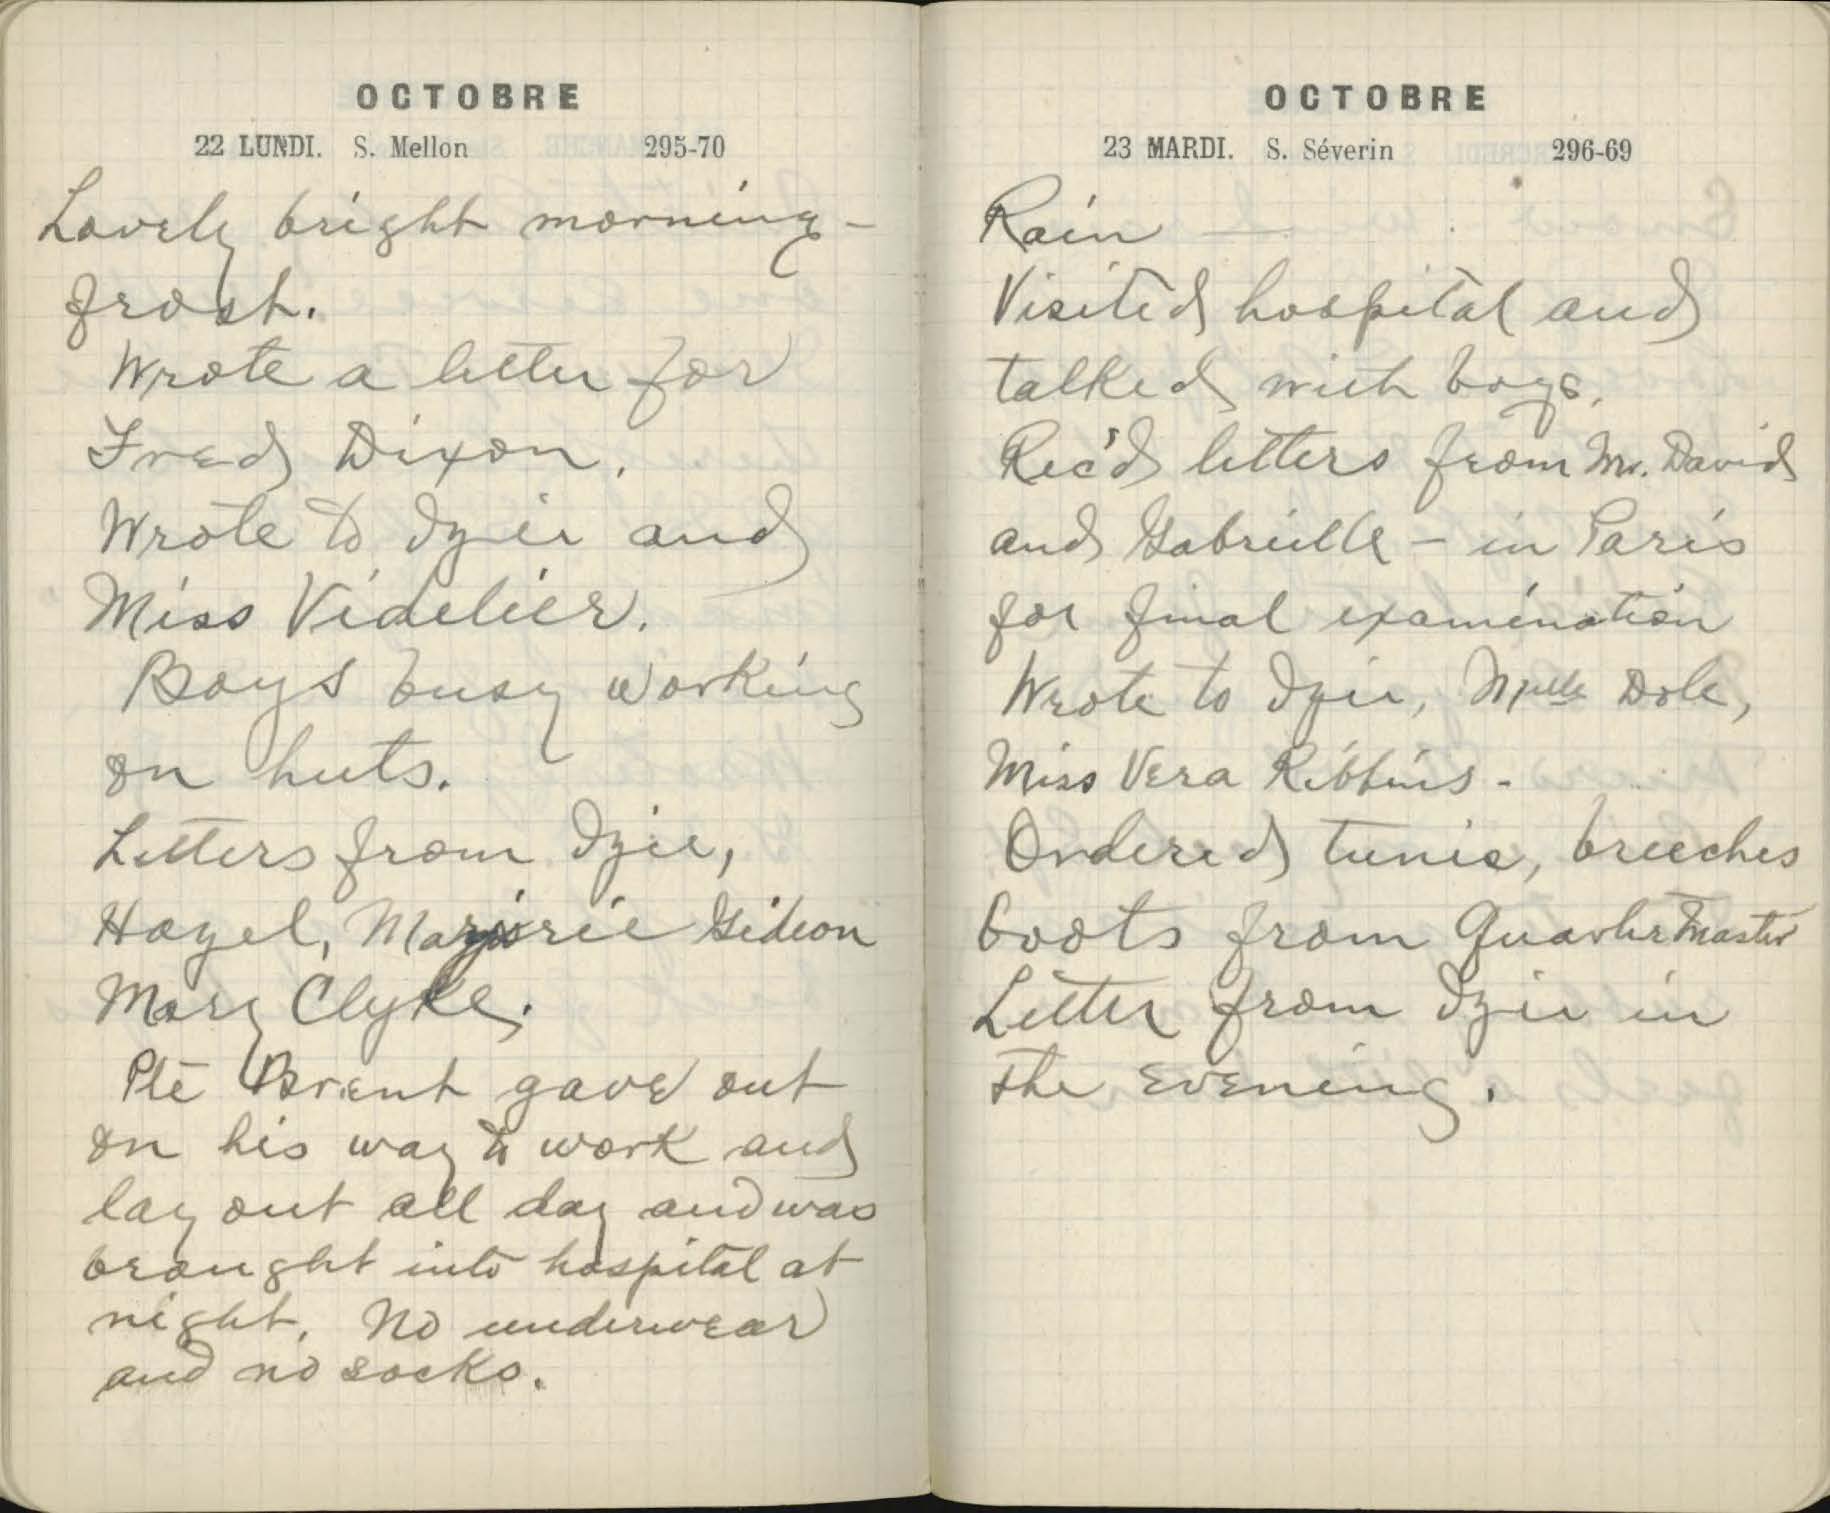 OCTOBRE
22 LUNDI. S. Mellon 295-70
Lovely bright morning –
frost.
Wrote a letter for
Fred Dixon.
Wrote to Izie and
Miss Videlier.
Boys busy working
on huts.
Letters from Izie,
Hazel, Marjorie Gideon
Mary Clyke.
Pte Brent gave out
on his way to work and
lay out all day and was
brought into hospital at
night. No underwear
and no socks.
OCTOBRE
23 MARDI. S. Séverin 296-69
Rain —
Visited hospital and
talked with boys.
Rec'd letters from Mr. David
and Gabrielle – in Paris
for final examination
Wrote to Izie, Mlle Dole,
Miss Vera Ribbins -
Ordered tunic, breeches
boots from Quartermaster
Letter from Izie in
the evening.